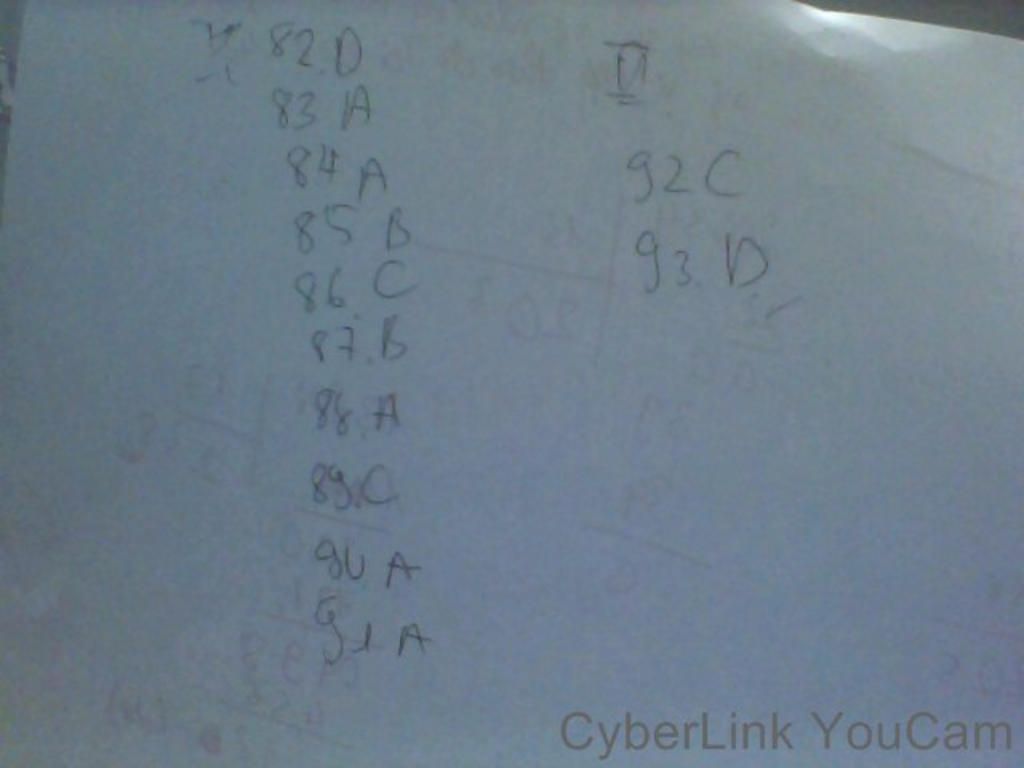 82.D
83 A
84 A
85 B
86. C
87. B
88. A
89. C
90 A
91 A
II
92 C
93. D
CyberLink YouCam